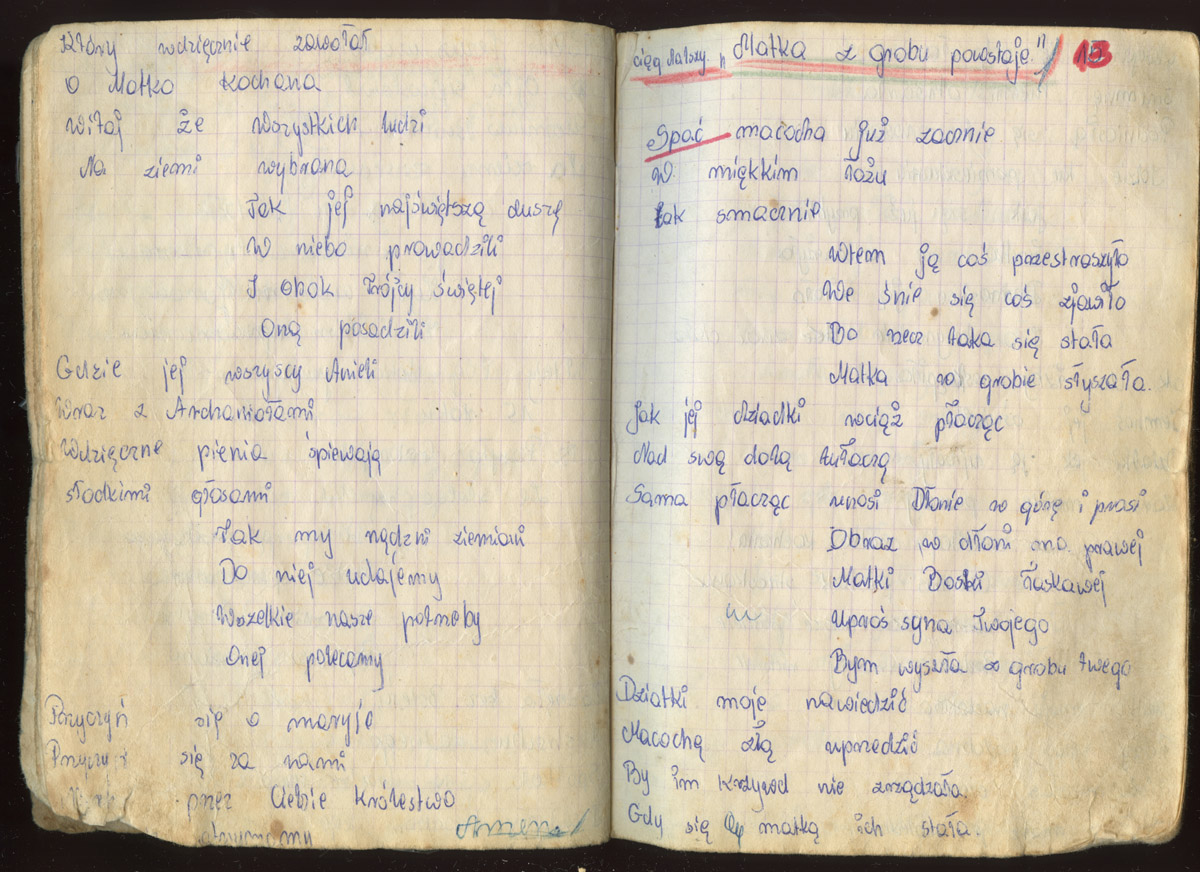 Który wdzięcznie zawołał
o Matko Kochana
Witaj że wszystkich ludzi
Na ziemi wybrana
Tak jej najświętszą duszę
W niebo prowadzili
I obok Trójcy świętej
Oną posadzili
Gdzie jej wszyscy Anieli
Wraz z Archaniołami
Wdzięczne pienia śpiewają
słodkimi głosami
Tak my nędzni ziemiani
Do niej udajemy
Wszelkie nasze potrzeby
Onej polecamy
Przyczyń się o maryjo
Przyczyń się za nami
przez Ciebie królestwo
otrzymamy
Amen
ciąg dalszy „Matka z grobu powstaje" 15
Spać macocha już zacznie
W miękkim łożu
tak smacznie
Wtem ją coś przestraszyło
We śnie się coś zjawiło
Bo rzecz taka się stała
Matka w grobie słyszała.
Jak jej dziadki wciąż płacząc
Nad swą dolą tułaczą
Sama płacząc wnosi Dłonie w górę i prosi
Obraz w dłoni ona prawej
Matki Boski łaskawej
Uproś syna Swojego
Bym wyszła z grobu twego
Dziatki moje nawiedzić
Macochę złą uprzedzić
By im krzywd nie zrządzała
Gdy się matką ich stała.